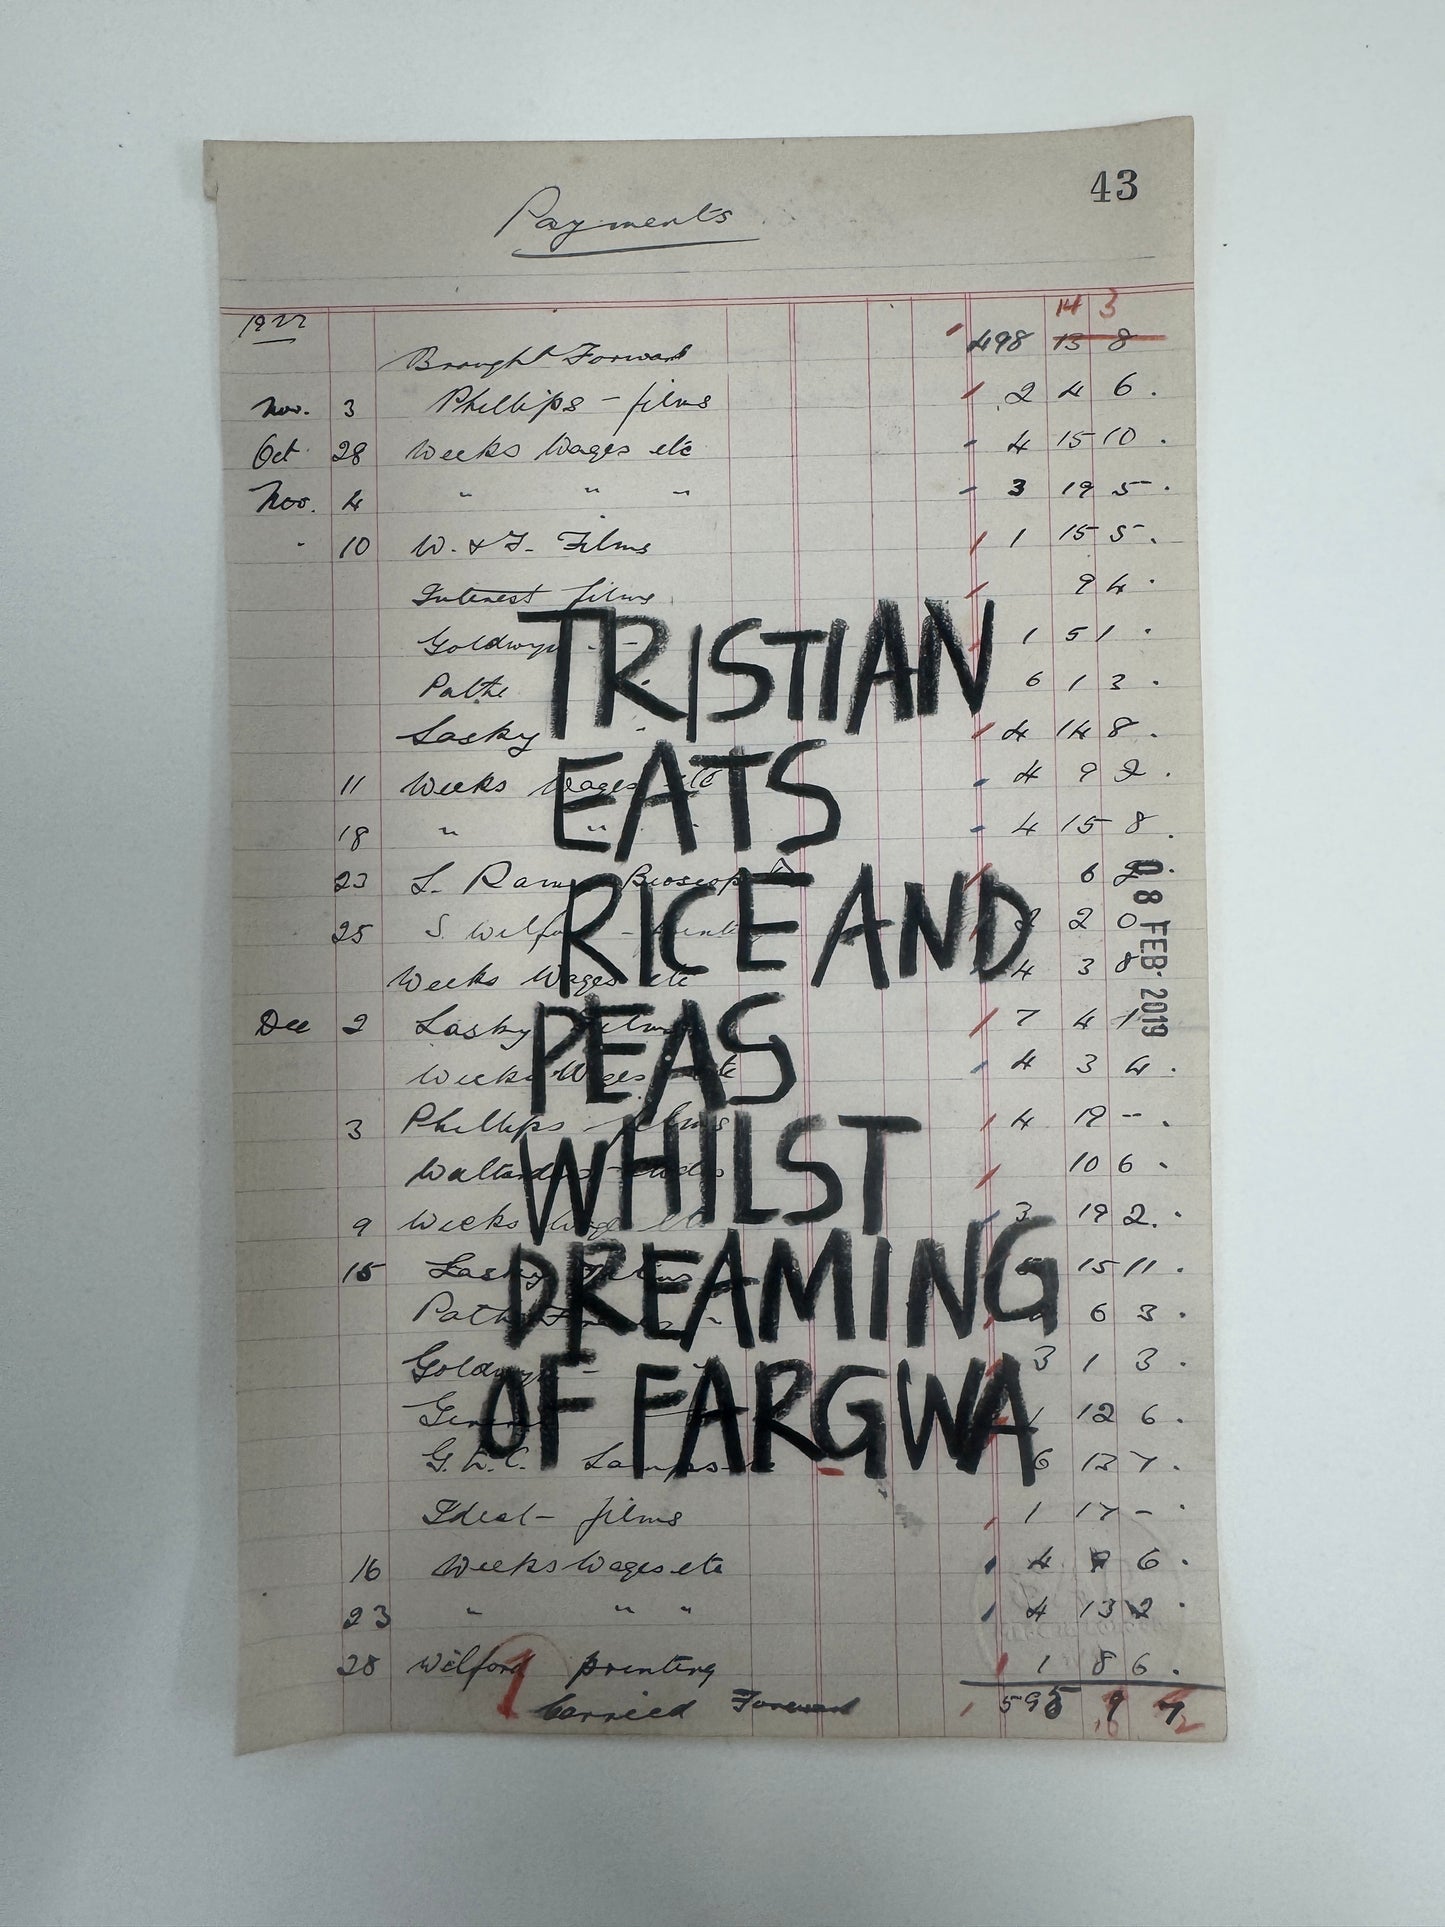 43
Payments
14 3
1922
Brought Forward 498 13 8
Nov. 3 Phillips - films 2 4 6.
Oct 28 Weeks Wages etc 4 15 10.
Nov. 4 " " " 3 19 5.
" 10 W. & F. Films 1 15 5.
Interest films 9 4.
TRISTIAN
Goldwyn " - 1 5 1.
Pathe " 6 1 3.
Lasky " 4 14 8.
EATS
11 Weeks Wages etc 4 9 2.
18 " " " 4 15 8.
RICE AND
23 L. Bioscope 6 2.
08 FEB 2019
25 S. 2 0
Weeks Wages etc 4 3 8
PEAS
Dec 2 Lasky Films 7 4 1
Weeks Wages etc 4 3 4.
WHILST
3 Phillips films 4 19 -.
10 6.
9 Weeks Wages etc 3 19 2.
DREAMING
15 Lasky Films 15 11.
Pathe 6 3.
OF FARGWA
Goldwyn - 3 1 3.
12 6.
Lamps 6 13 7.
Ideal - films 1 17 -
16 Weeks Wages etc 4 6.
23 " " " 4 13 2
28 Wilford printing 1 8 6.
Carried Forward 595 9